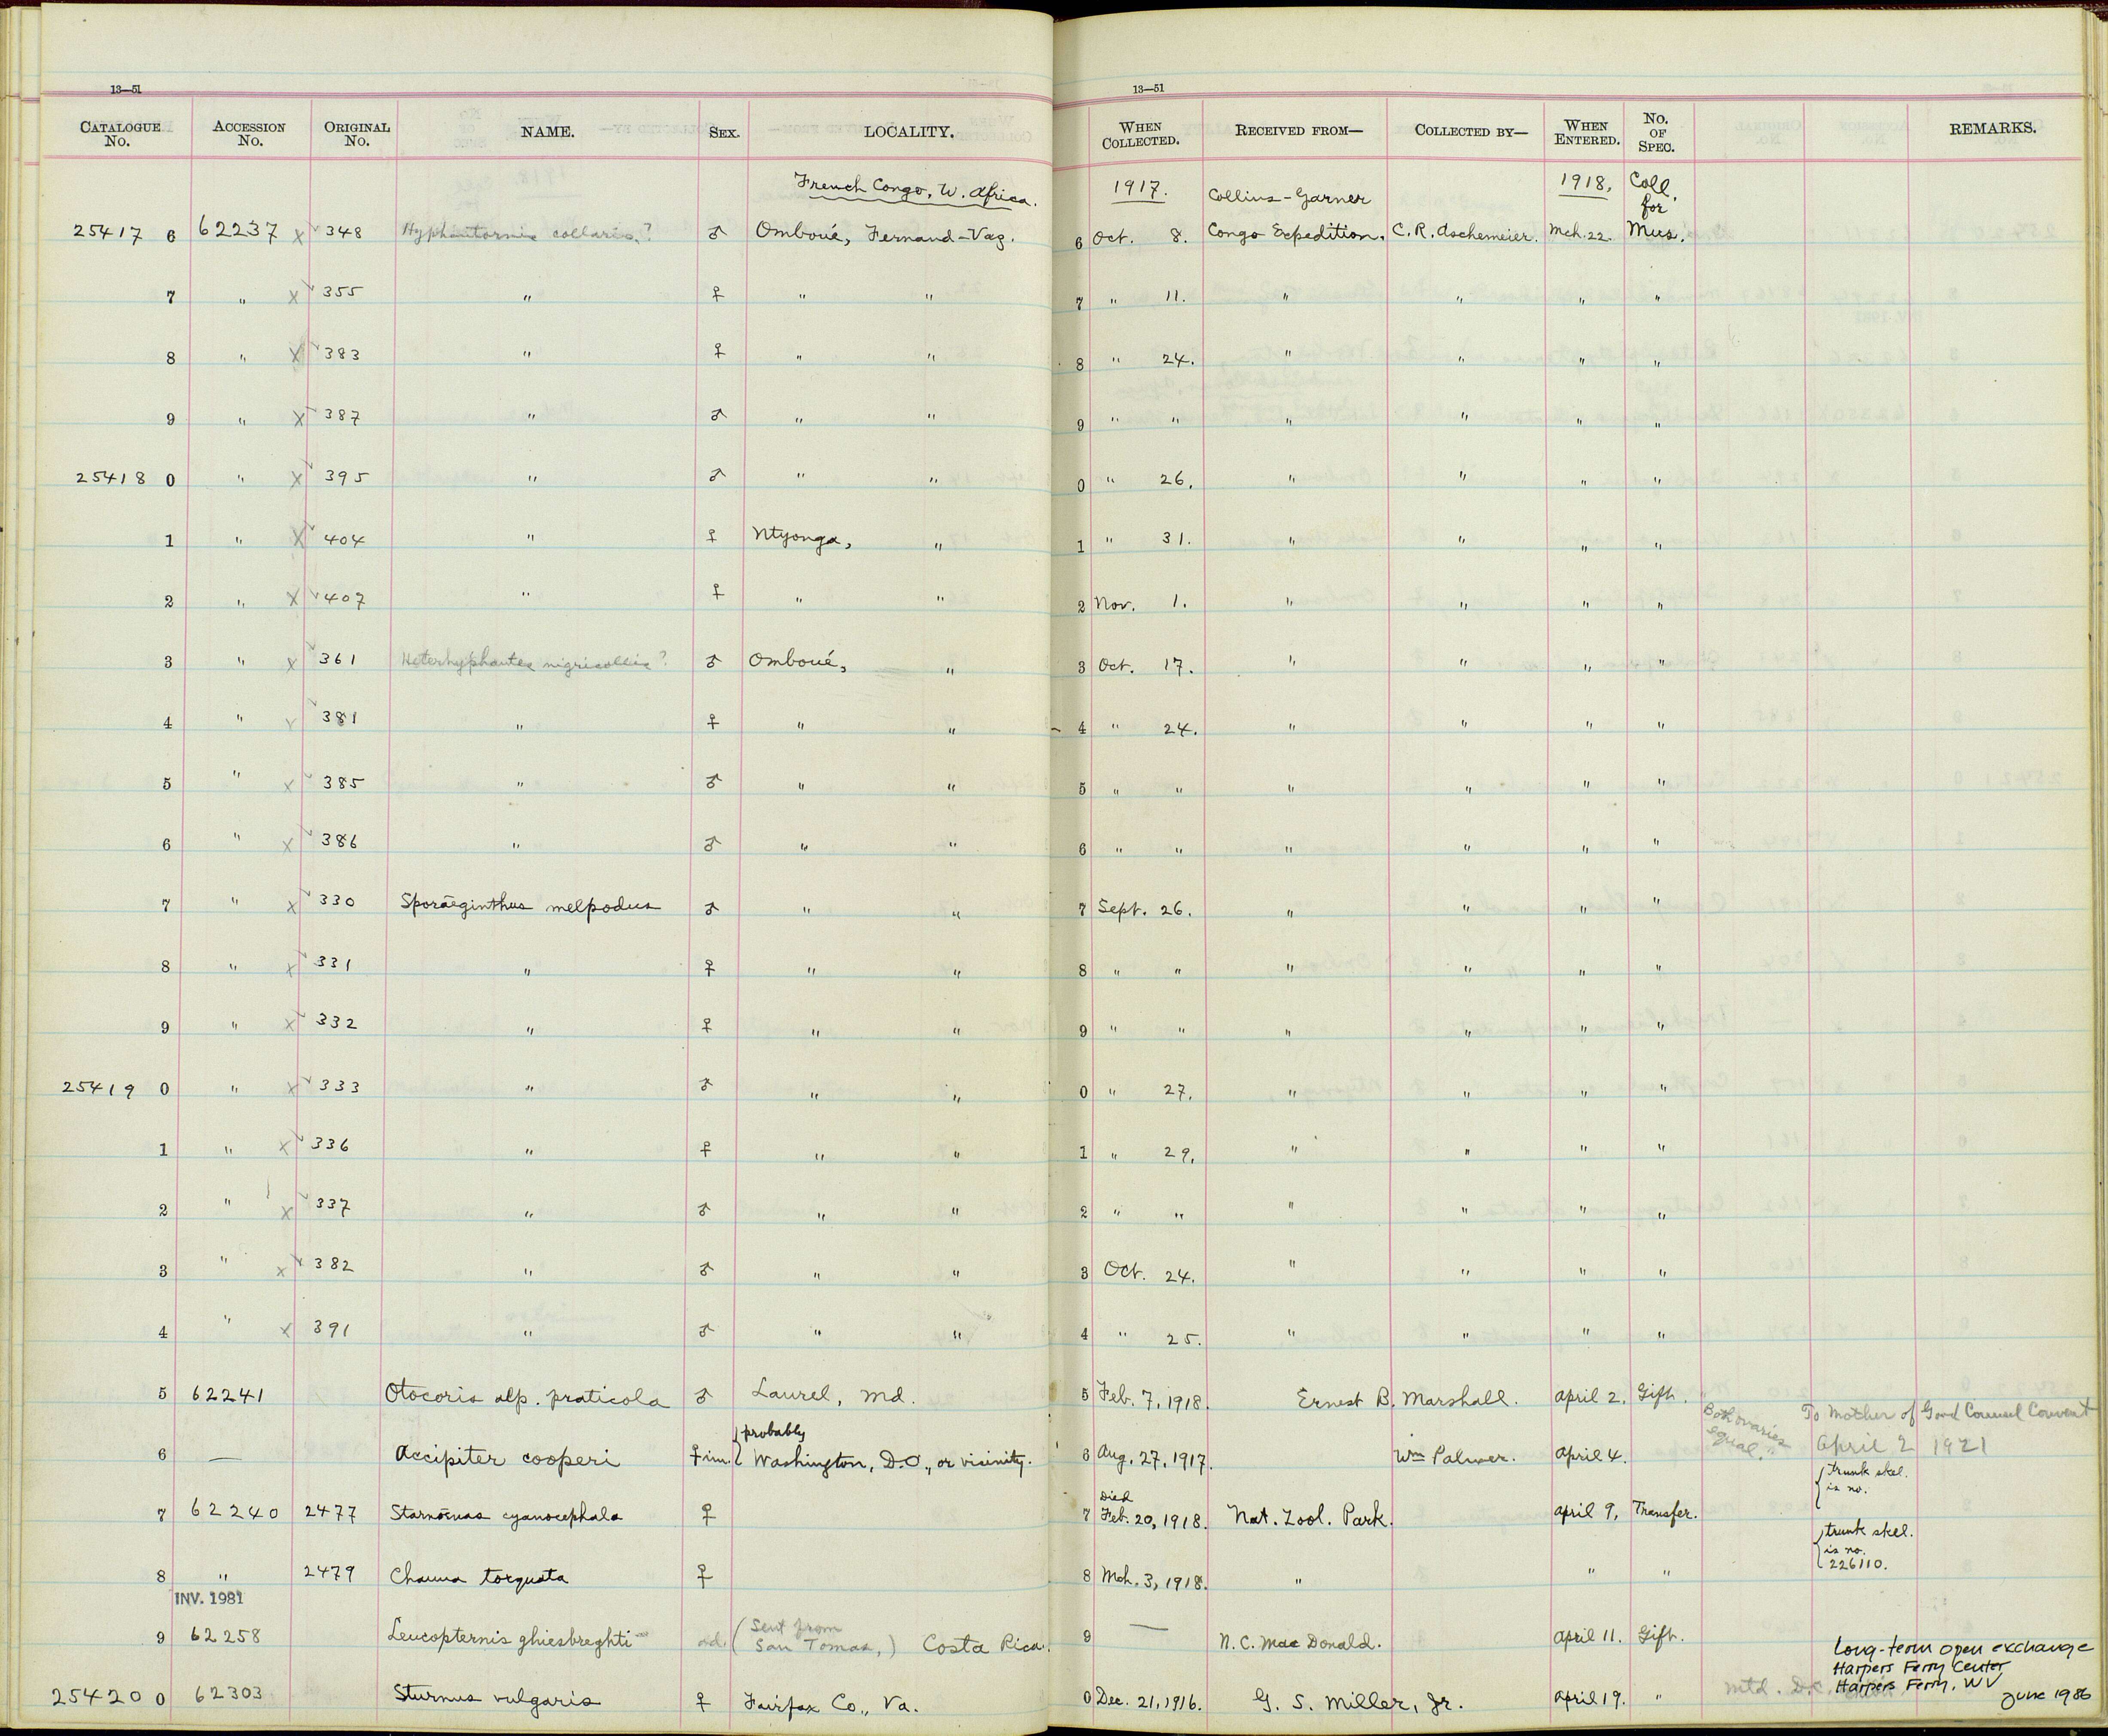 13—51
13—51
CATALOGUE No. ACCESSION No. ORIGINAL No. NAME. SEX. LOCALITY. WHEN COLLECTED. RECEIVED FROM— COLLECTED BY— WHEN ENTERED. No. OF SPEC. REMARKS.
French Congo, W. Africa. 1917. Collins-Garner 1918. Coll. for
25417 6 62237 x 348 Hyphantornis collaris.? ♂ Omboué, Fernand-Vaz. 6 Oct. 8. Congo Expedition. C. R. Aschemeier. Mch. 22. Mus.
7 " x 355 " ♀ " " 7 " 11. " " " "
8 " x 383 " ♀ " " 8 " 24. " " " "
9 " x 387 " ♂ " " 9 " " " " " "
25418 0 " x 395 " ♂ " " 0 " 26. " " " "
1 " x 404 " ♀ Ntyonga, " 1 " 31. " " " "
2 " x 407 " ♀ " " 2 Nov. 1. " " " "
3 " x 361 Heterhyphantes nigricollis? ♂ Omboué, " 3 Oct. 17. " " " "
4 " x 381 " ♀ " " 4 " 24. " " " "
5 " x 385 " ♂ " " 5 " " " " " "
6 " x 386 " ♂ " " 6 " " " " " "
7 " x 330 Sporæginthus melpodus ♂ " " 7 Sept. 26. " " " "
8 " x 331 " ♀ " " 8 " " " " " "
9 " x 332 " ♀ " " 9 " " " " " "
25419 0 " x 333 " ♂ " " 0 " 27. " " " "
1 " x 336 " ♀ " " 1 " 29. " " " "
2 " x 337 " ♂ " " 2 " " " " " "
3 " x 382 " ♂ " " 3 Oct. 24. " " " "
4 " x 391 " ♂ " " 4 " 25. " " " "
5 62241 Otocoris alp. praticola ♂ Laurel, Md. 5 Feb. 7, 1918. Ernest B. Marshall. April 2. Gift.
Both ovaries equal. To Mother of Good Counsel Convent
April 2 1921
probably
6 — Accipiter cooperi ♀ im. Washington, D.C., or vicinity. 6 Aug. 27, 1917. Wm Palmer. April 4.
trunk skel.
is no.
Died
7 62240 2477 Starnœnas cyanocephala ♀ 7 Feb. 20, 1918. Nat. Zool. Park. April 9. Transfer.
trunk skel.
is no.
226110.
8 " 2479 Chauna torquata ♀ 8 Mch. 3, 1918. " " "
INV. 1981
9 62258 Leucopternis ghiesbreghti ad. (Sent from San Tomas,) Costa Rica. 9 — N. C. MacDonald. April 11. Gift.
Long-term open exchange
Harpers Ferry Center
Harpers Ferry, WV
June 1986
25420 0 62303 Sturnus vulgaris ♀ Fairfax Co., Va. 0 Dec. 21, 1916. G. S. Miller, Jr. April 19. " mtd.